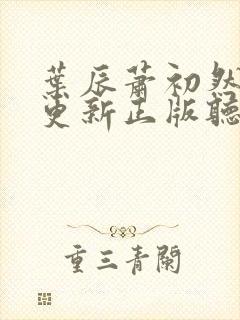 葉辰蕭初然
更新正版聽
重三青闌